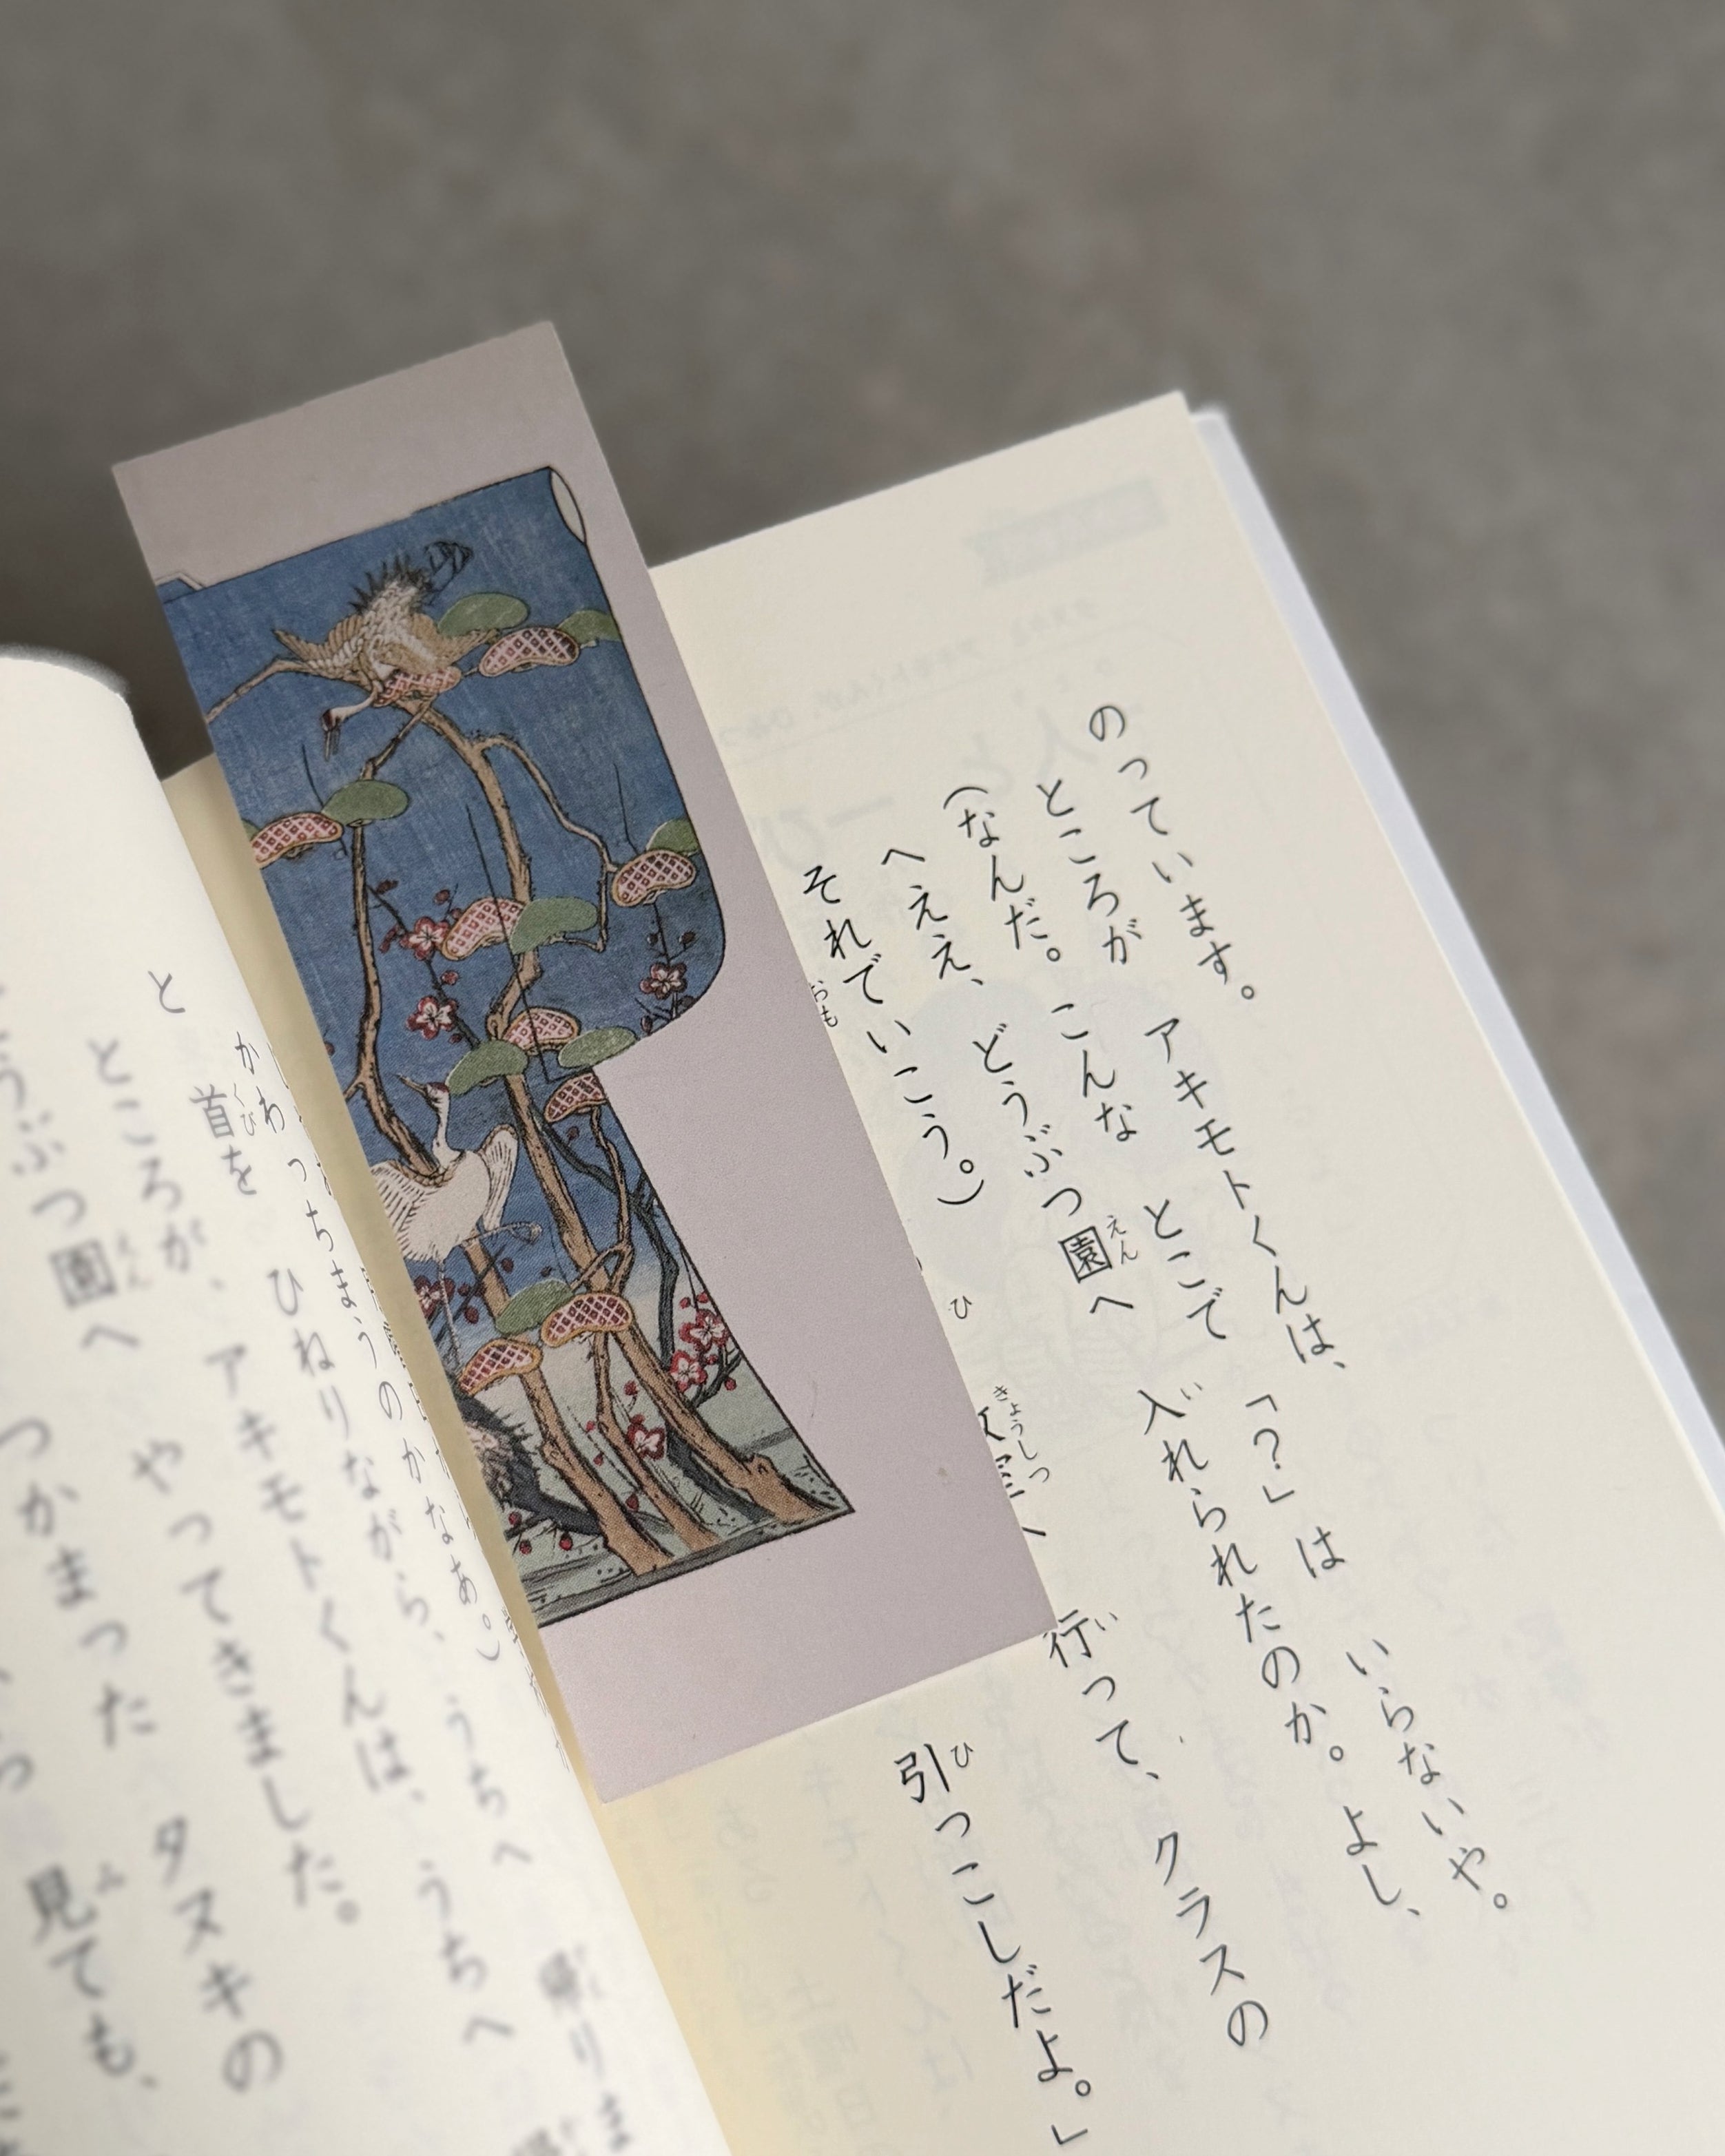 のっています。
ところが アキモトくんは、
(なんだ。 こんな とこで 「?」は いらないや。
へええ、 どうぶつ園へ 入れられたのか。 よし、
えん
い
それでいこう。)
おも
ひ
きょうしつ
行って、 クラスの
い
引っこしだよ。」
ひ
かわっちまうのかなあ。)
と 首を ひねりながら、 うちへ 帰りま
くび
ところが、 アキモトくんは、 うちへ
どうぶつ園へ やってきました。
えん
つかまった タヌキの
見ても、
み